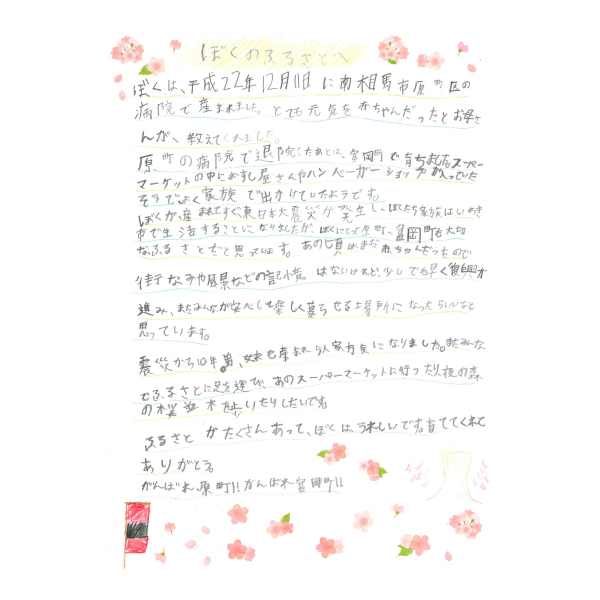 ぼくのふるさとへ
ぼくは、平成22年12月11日に南相馬市原町区の
病院で産まれました。とても元気な赤ちゃんだったとお母さ
んが、教えてくれました。
原町の病院で退院したあとは、富岡町で育ちましたスーパー
マーケットの中におすし屋さんやハンバーガーショップが入っていた
そうでよく家族で出かけていたようです。
ぼくが、産まれてすぐ東日本大震災が発生し、ぼくたち家族はいわき
市で生活することになりましたが、ぼくにとって原町、富岡町も大切
なふるさとだと思っています。あの頃はまだ赤ちゃんだったので
街なみや風景などの記憶はないけれど、少しでも早く復興が
進み、またみんなが安心して楽しく暮らせる場所になったらいいなと
思っています。
震災から10年。弟、妹も産まれ5人家族になりました。またみんな
でふるさとに足を運び、あのスーパーマーケットに行ったり、夜の森
の桜並木を歩いたりしたいです。
ふるさとがたくさんあって、ぼくは、うれしいです。育ててくれて
ありがとう。
がんばれ、原町!!がんばれ富岡町!!